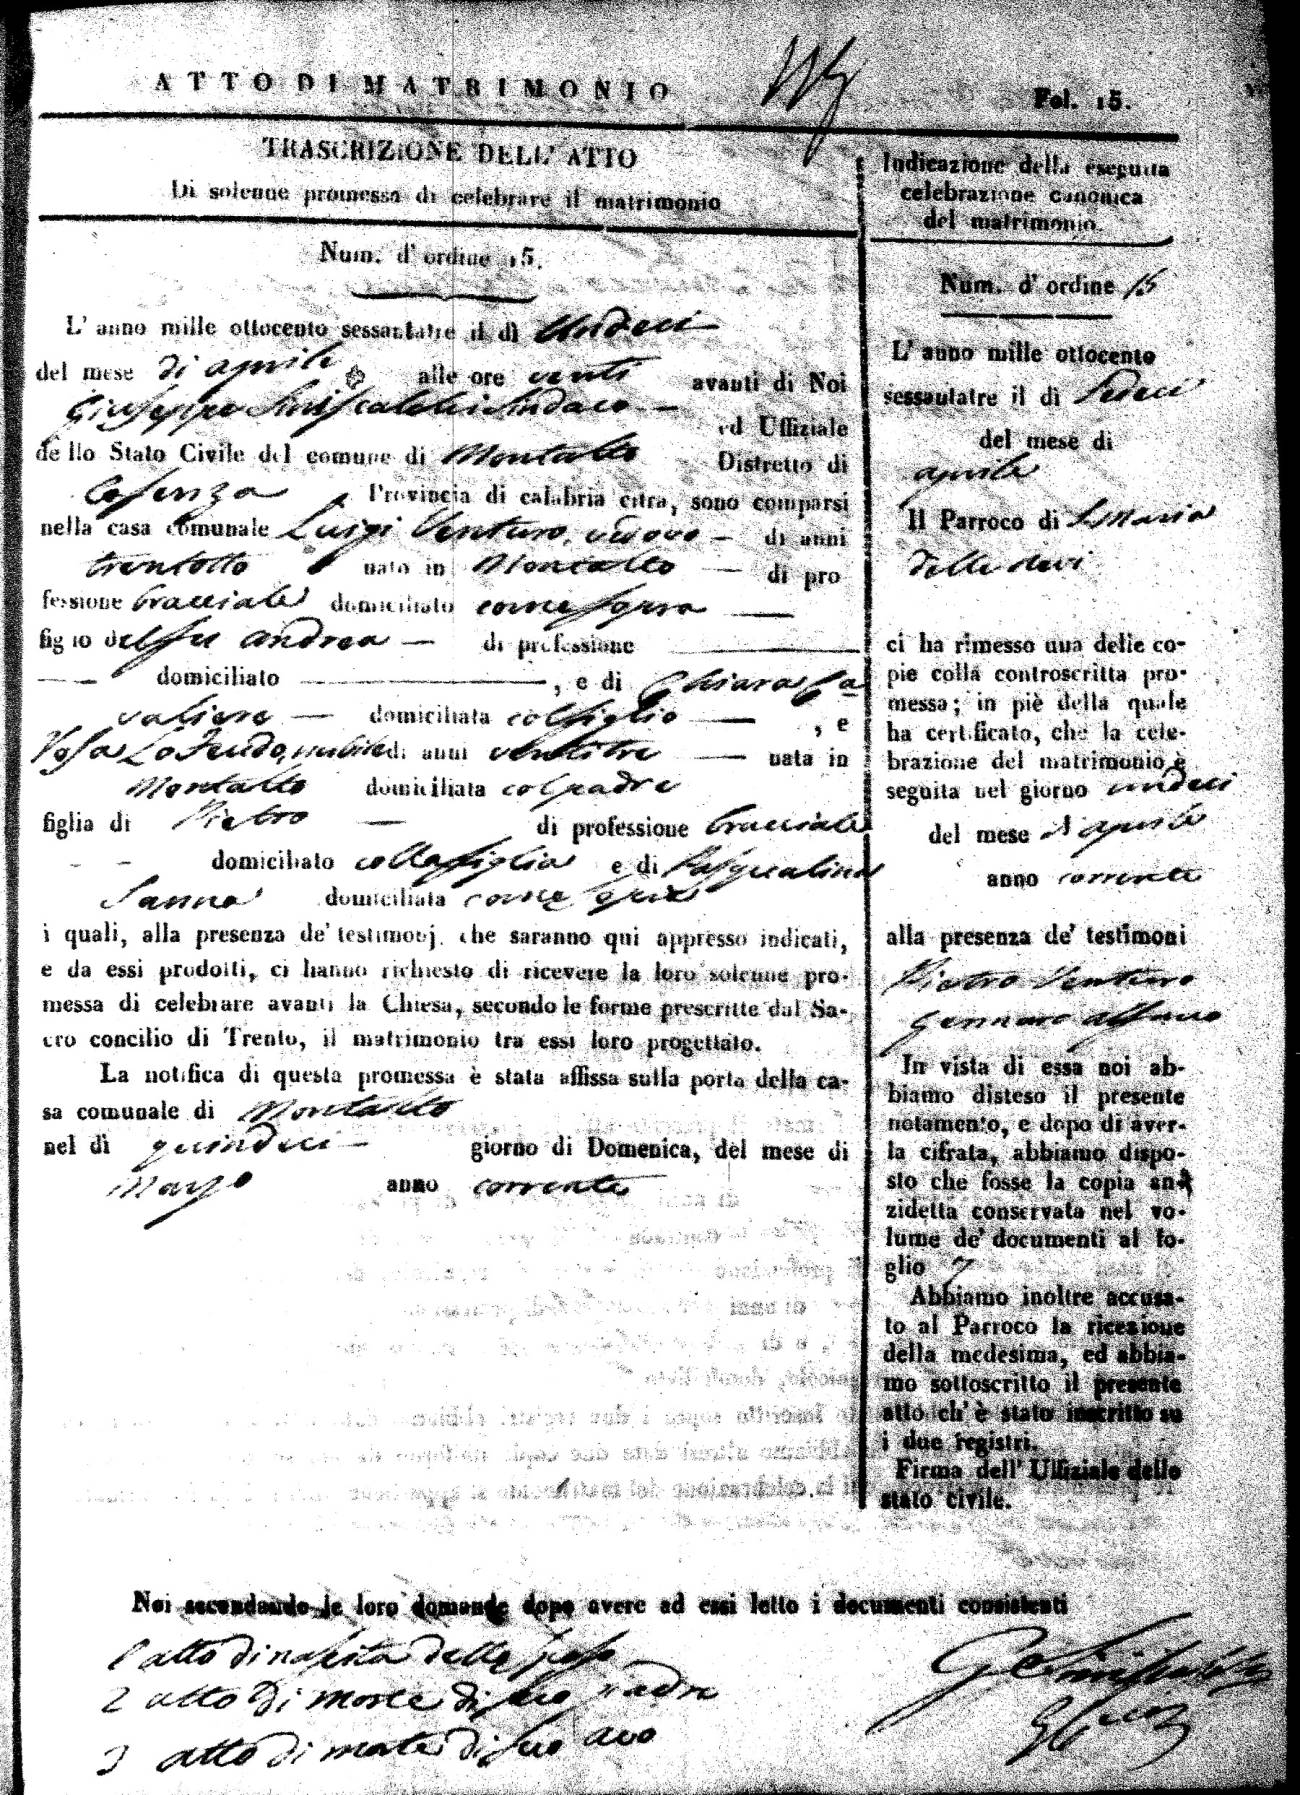 ATTO DI MATRIMONIO
Fol. 15.
TRASCRIZIONE DELL' ATTO
Di solenne promessa di celebrare il matrimonio
Num. d' ordine 15.
L' anno mille ottocento sessantatre il dì Undeci
del mese di aprile alle ore venti avanti di Noi
Giuseppe Siniscalchi Sindaco ed Uffiziale
dello Stato Civile del comune di Montalto Distretto di
Cosenza Provincia di calabria citra, sono comparsi
nella casa comunale Luigi Venturo, vedovo di anni
trentotto nato in Montalto di pro
fessione bracciale domiciliato come sopra
figlio del fu Andrea di professione
domiciliato , e di Chiara Ca
valiere domiciliata col figlio , e
Rosa Lo Feudo, nubile di anni ventitre nata in
Montalto domiciliata col padre
figlia di Pietro di professione bracciale
domiciliato colla figlia e di Pasqualina
Sanno domiciliata come sopra
i quali, alla presenza de' testimonj che saranno qui appresso indicati,
e da essi prodotti, ci hanno richiesto di ricevere la loro solenne pro-
messa di celebrare avanti la Chiesa, secondo le forme prescritte dal Sa-
cro concilio di Trento, il matrimonio tra essi loro progettato.
La notifica di questa promessa è stata affissa sulla porta della ca-
sa comunale di Montalto
nel dì quindeci giorno di Domenica, del mese di
Marzo anno corrente
Indicazione della eseguita
celebrazione canonica
del matrimonio.
Num. d' ordine 15
L' anno mille ottocento
sessantatre il dì Sedeci
del mese di
aprile
Il Parroco di S. Maria
della
ci ha rimesso una delle co-
pie colla controscritta pro-
messa; in piè della quale
ha certificato, che la cele-
brazione del matrimonio è
seguita nel giorno undeci
del mese d'aprile
anno corrente
alla presenza de' testimoni
Pietro Venturo
Gennaro Alfano
In vista di essa noi ab-
biamo disteso il presente
notamento, e dopo di aver-
la cifrata, abbiamo dispo-
sto che fosse la copia an-
zidetta conservata nel vo-
lume de' documenti al fo-
glio 7
Abbiamo inoltre accusa-
to al Parroco la ricezione
della medesima, ed abbia-
mo sottoscritto il presente
atto ch' è stato inscritto su
i due registri.
Firma dell' Uffiziale dello
stato civile.
Noi secondando le loro domande dopo avere ad essi letto i documenti consistenti
1 atto di nascita dello sposo
2 atto di morte di suo padre
3 atto di morte di suo avo